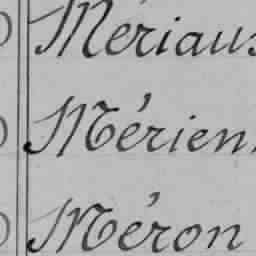 Mériaus
Mérien
Méron